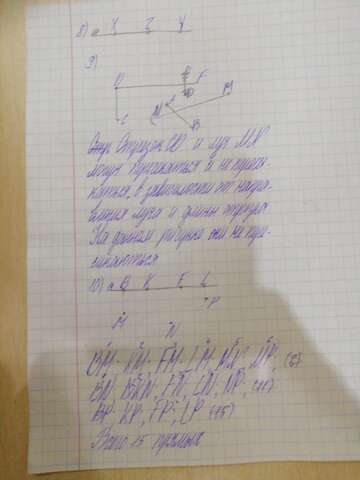 8) a X Z Y
9)
D F
C
M
A
B
Отрезок CD и луч MN
могут пересекаться и не пересе-
каться, в зависимости от направ-
ления луча и длины отрезка.
На данном рисунке они не пере-
секаются
10) a B K E L
P
M
N
BM, KM, EM, LM, MN, MP, (6)
BN, KN, EN, LN, NP,
BP, KP, EP, LP (15)
Всего 15 прямых